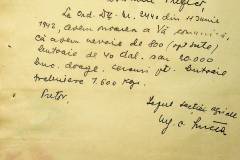 La ord. Dv. No. 2440 din 11 Iunie
1942, avem onoarea a Vă
că avem nevoie de 800 (opt sute)
butoaie de 40 dal. sau 20.000
buc. doage. Cercuri pt. butoaie
trebuiesc 7.600 kgr.
Pretor,
Șeful secției agricole
Ing.